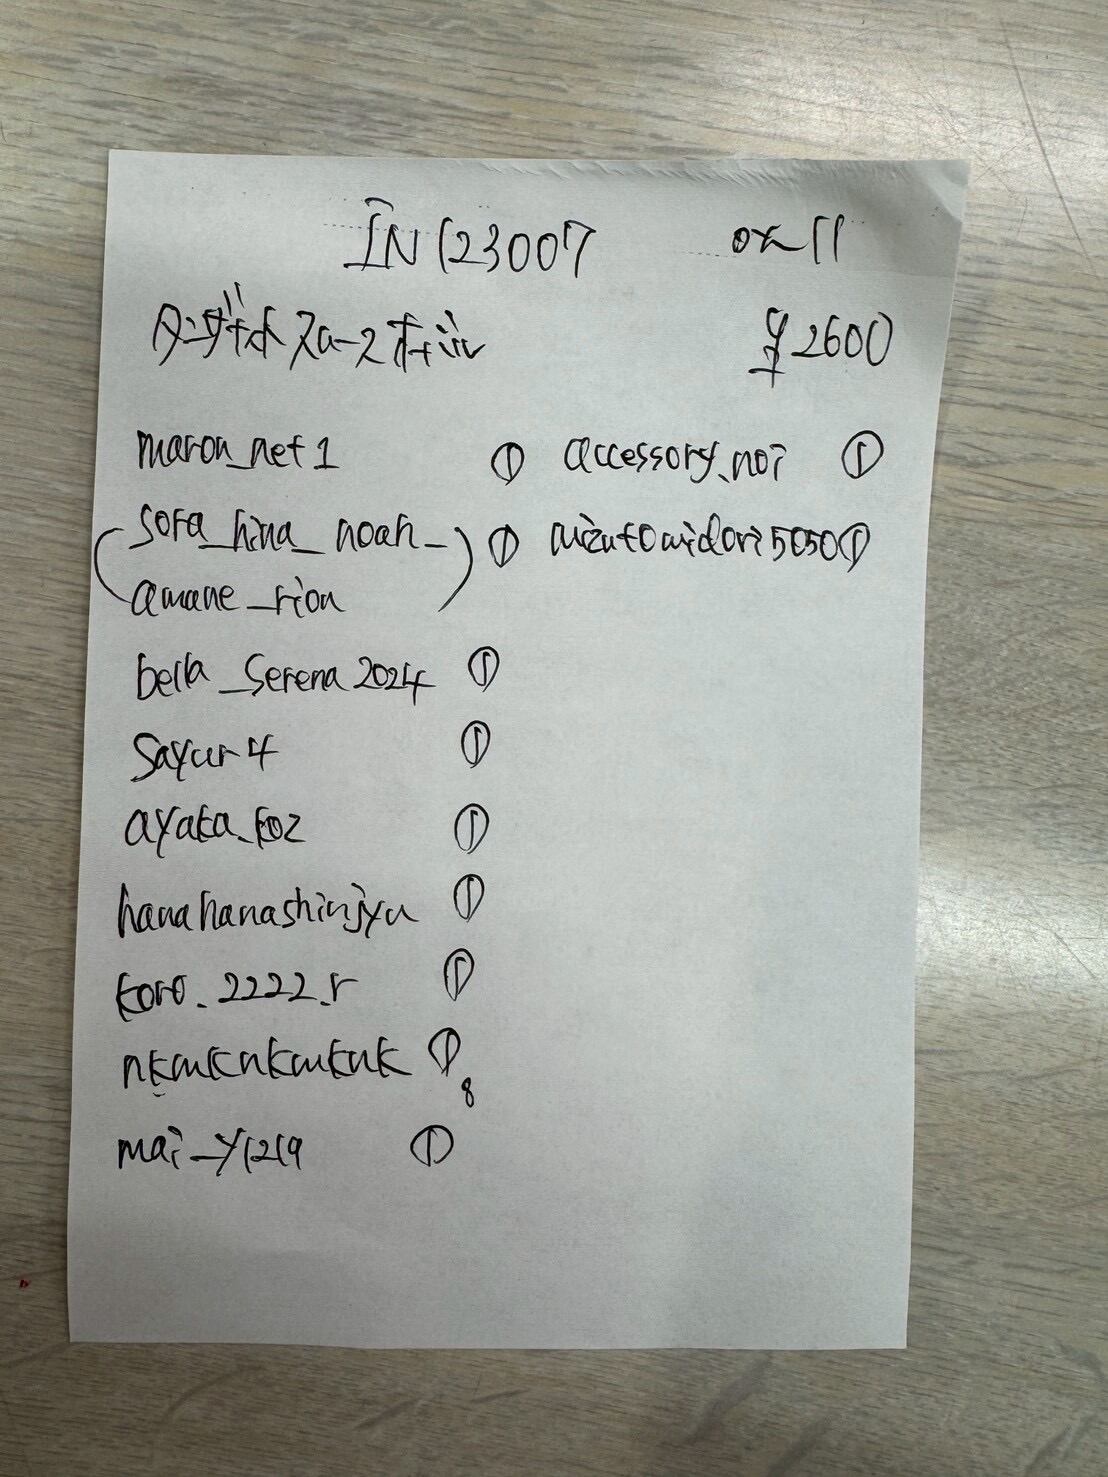 IN123007
¥2600
maron_net1 ①
sora_hina_noah_
amane_rion ①
bella_serena2024 ①
sayur4 ①
ayaka_koz ①
hanahanashinjyu ①
koro_2222_r ①
nkmknkmknk ①
8
mai_y1219 ①
accessory_noi ①
mizutomidori5050 ①